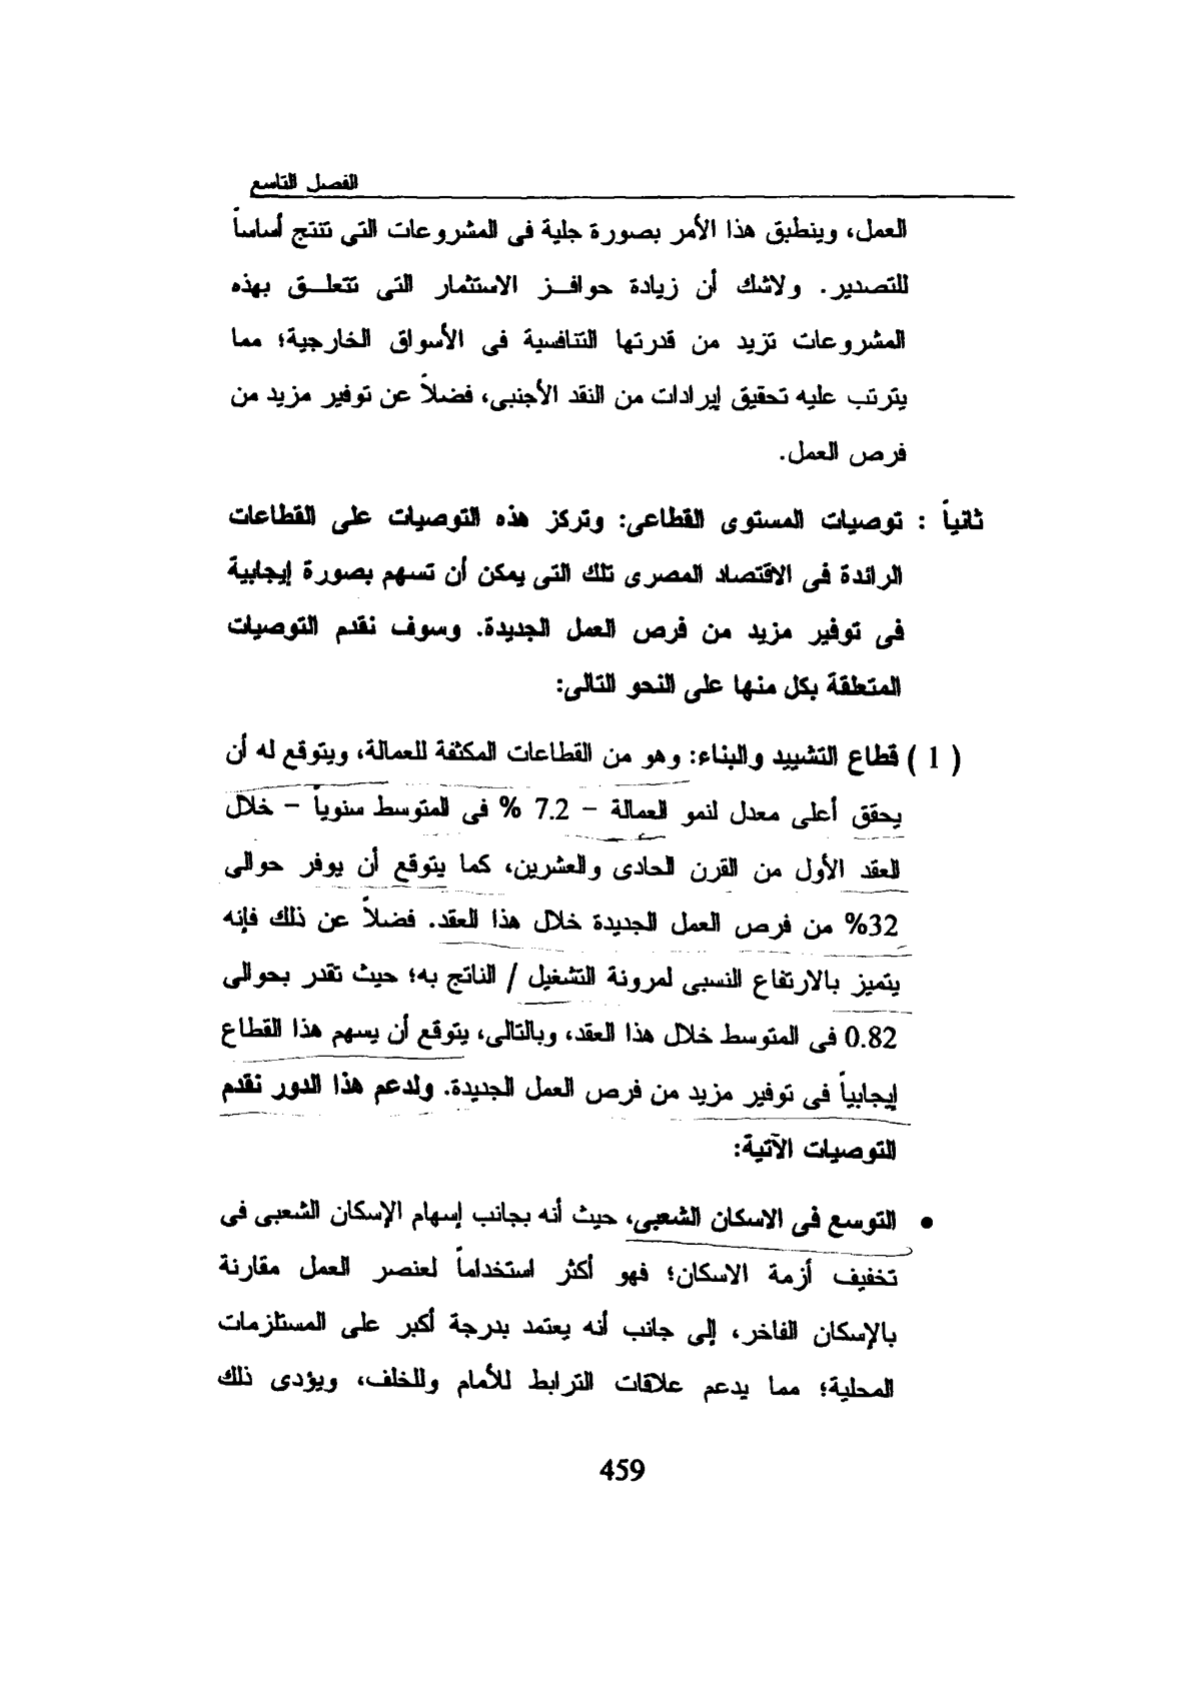 الفصل التاسع
العمل، وينطبق هذا الأمر بصورة جلية فى المشروعات التى تنتج أساساً
للتصدير. ولاشك أن زيادة حوافــز الاستثمار التى تتعلــق بهذه
المشروعات تزيد من قدرتها التنافسية فى الأسواق الخارجية؛ مما
يترتب عليه تحقيق إيرادات من النقد الأجنبى، فضلاً عن توفير مزيد من
فرص العمل.
ثانياً : توصيات المستوى القطاعى: وتركز هذه التوصيات على القطاعات
الرائدة فى الاقتصاد المصرى تلك التى يمكن أن تسهم بصورة إيجابية
فى توفير مزيد من فرص العمل الجديدة. وسوف نقدم التوصيات
المتعلقة بكل منها على النحو التالى:
( 1 ) قطاع التشييد والبناء: وهو من القطاعات المكثفة للعمالة، ويتوقع له أن
يحقق أعلى معدل لنمو العمالة – 7.2 % فى المتوسط سنوياً – خلال
العقد الأول من القرن الحادى والعشرين، كما يتوقع أن يوفر حوالى
32% من فرص العمل الجديدة خلال هذا العقد. فضلاً عن ذلك فإنه
يتميز بالارتفاع النسبى لمرونة التشغيل / الناتج به؛ حيث تقدر بحوالى
0.82 فى المتوسط خلال هذا العقد، وبالتالى، يتوقع أن يسهم هذا القطاع
إيجابياً فى توفير مزيد من فرص العمل الجديدة. ولدعم هذا الدور نقدم
التوصيات الآتية:
• التوسع فى الاسكان الشعبى، حيث أنه بجانب إسهام الإسكان الشعبى فى
تخفيف أزمة الاسكان؛ فهو أكثر استخداماً لعنصر العمل مقارنة
بالإسكان الفاخر، إلى جانب أنه يعتمد بدرجة أكبر على المستلزمات
المحلية؛ مما يدعم علاقات الترابط للأمام وللخلف، ويؤدى ذلك
459